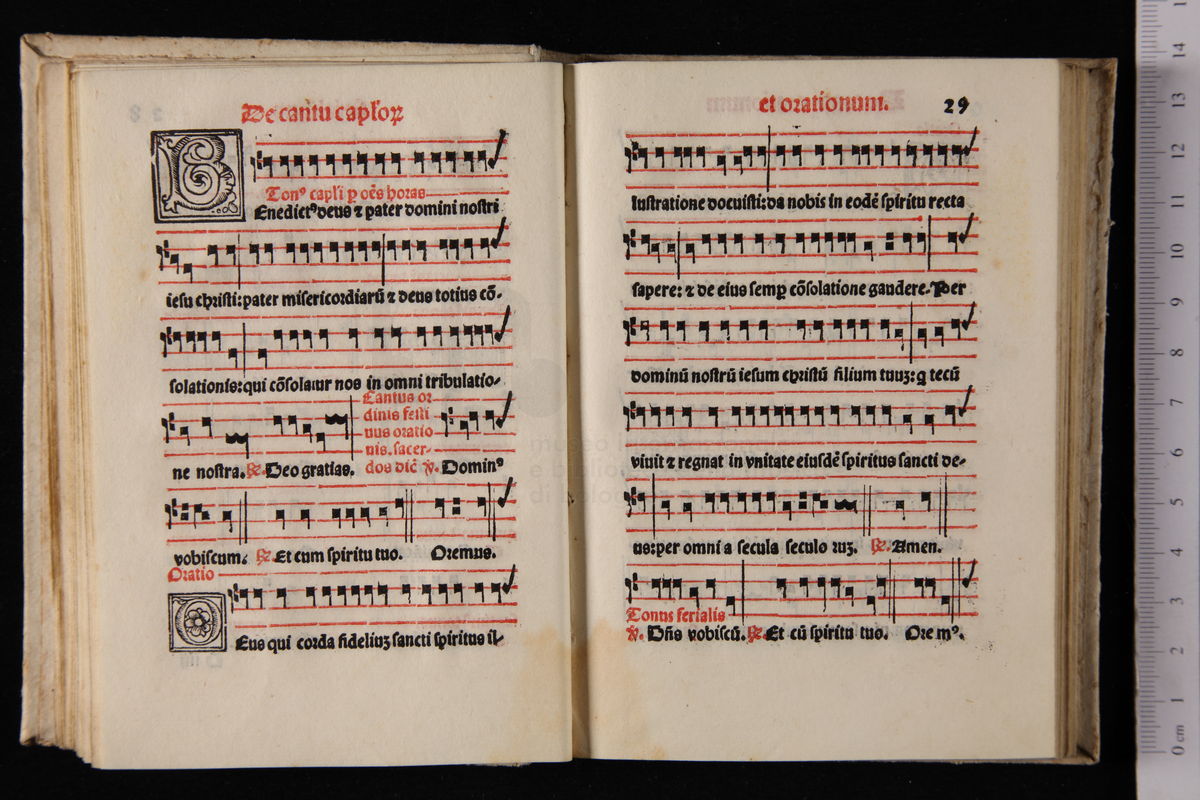 De cantu capłoꝝ
Tonꝰ capłi ꝑ oẽs horas
Benedictꝰ deus ⁊ pater domini nostri
iesu christi: pater misericordiarũ ⁊ deus totius cõ-
solationis: qui cõsolatur nos in omni tribulatio-
Cantus or
dinis festi
uus oratio
nis. sacer-
dos dic̃ ℣. Dominꝰ
ne nostra. ℟. Deo gratias.
vobiscum. ℟. Et cum spiritu tuo. Oremus.
Oratio
Deus qui corda fideliuꝫ sancti spiritus il-
et orationum. 29
lustratione docuisti: da nobis in eodẽ spiritu recta
sapere: ⁊ de eius semꝑ cõsolatione gaudere. Per
dominũ nostrũ iesum christũ filium tuuꝫ: ꝗ tecũ
viuit ⁊ regnat in vnitate eiusdẽ spiritus sancti de-
us: per omnia secula seculoruꝫ. ℟. Amen.
Tonus ferialis
℣. Dñs vobiscũ. ℟. Et cũ spiritu tuo. Oremꝰ.
museo i
e biblio
di bolo
0 cm 1 2 3 4 5 6 7 8 9 10 11 12 13 14